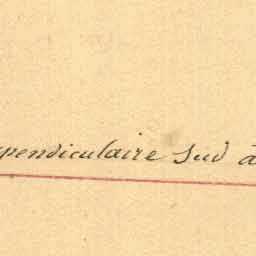 pendiculaire Sud à